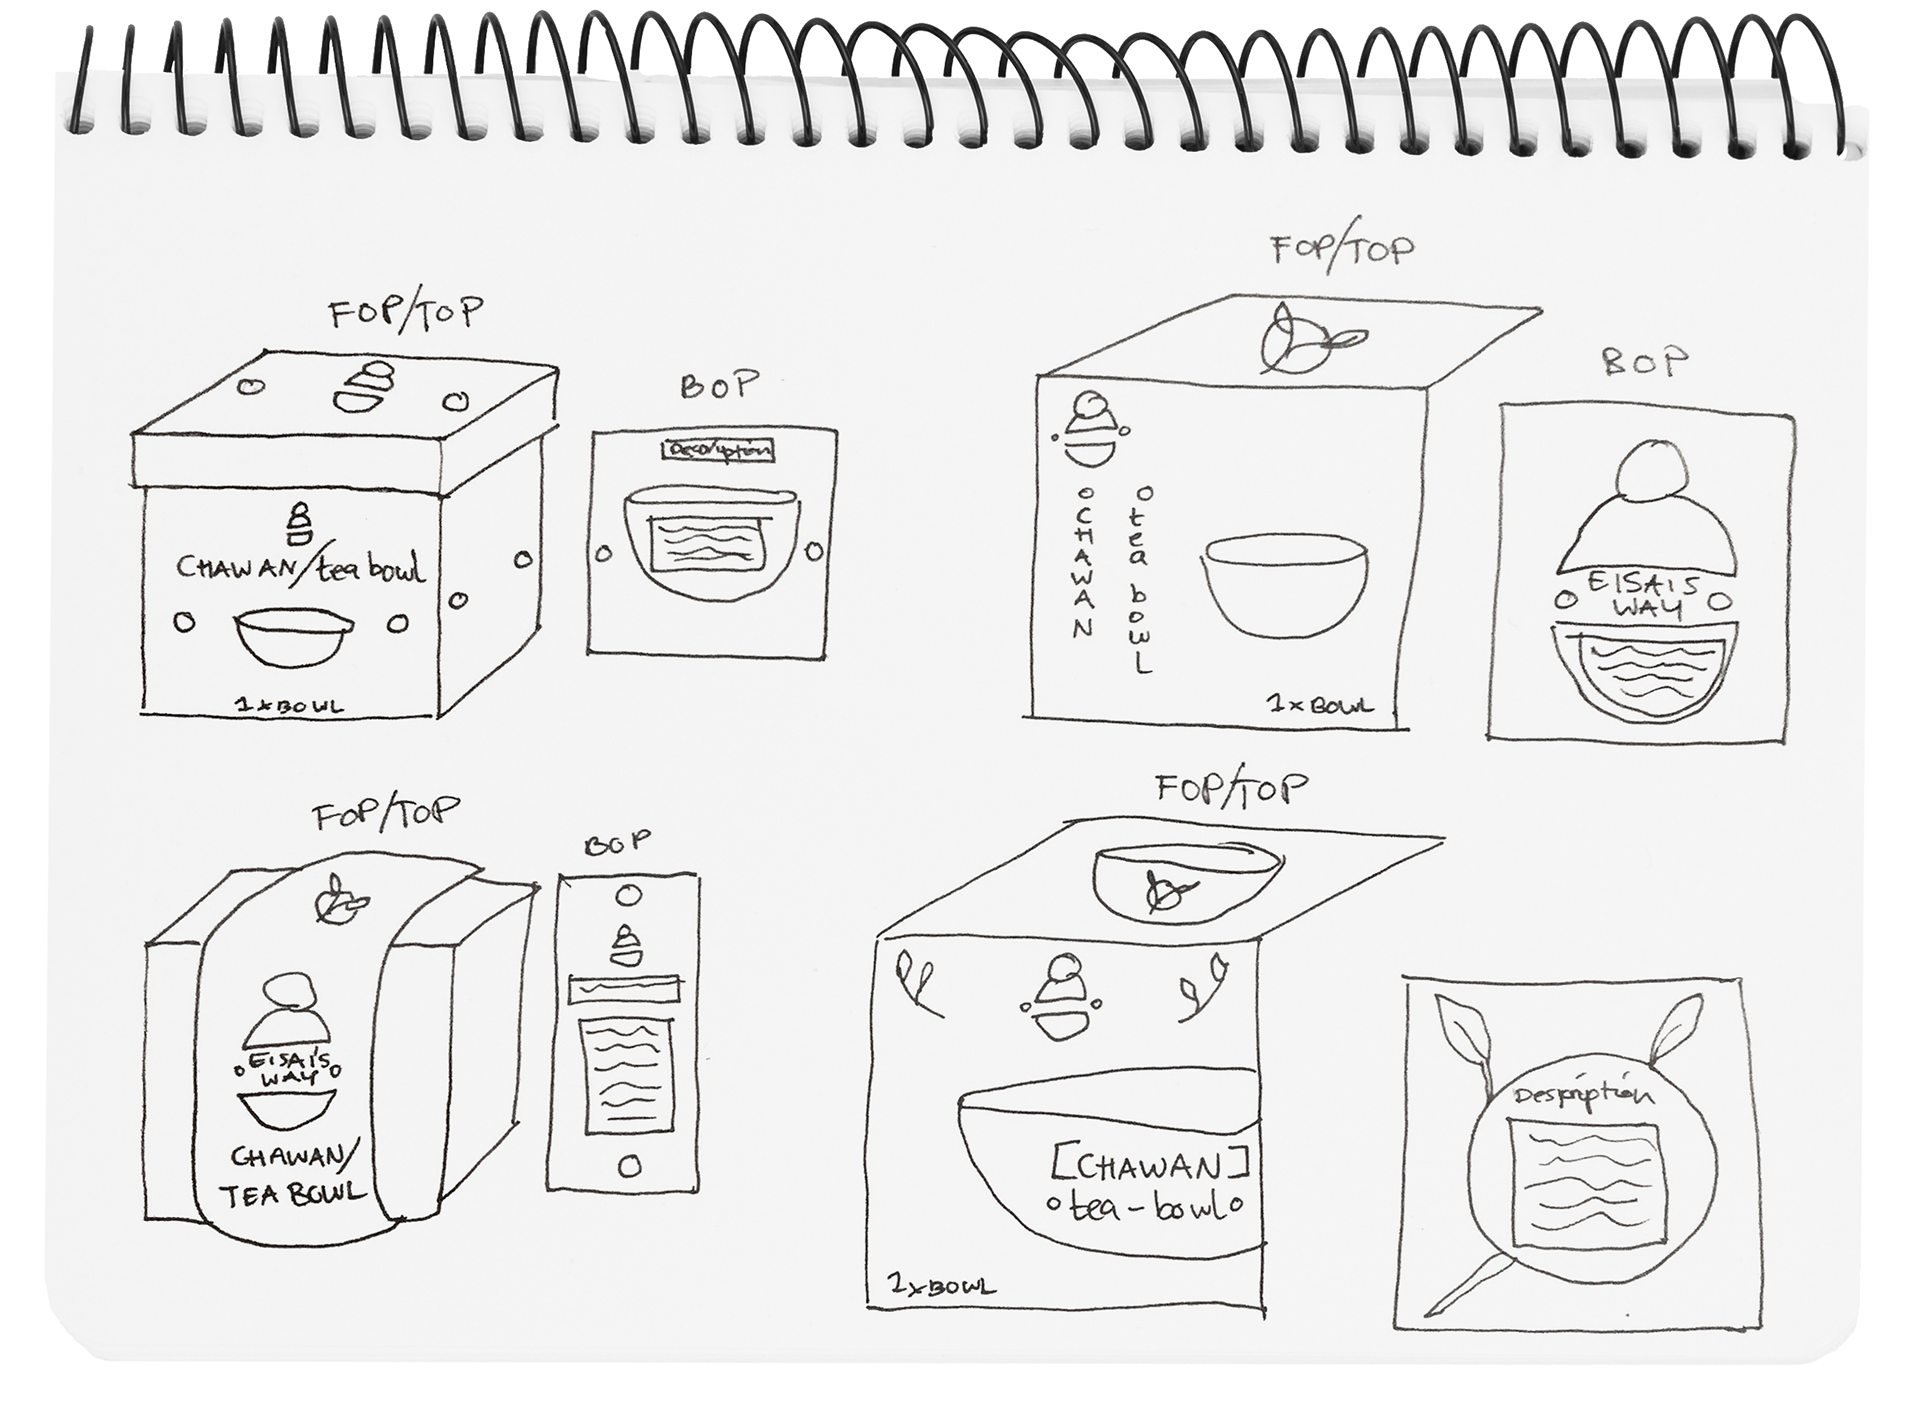 FOP/TOP
CHAWAN/tea bowl
1xBOWL
BOP
Description
FOP/TOP
CHAWAN
tea bowL
1xBOWL
BOP
EISAIS
WAY
FOP/TOP
EISAI'S
WAY
CHAWAN/
TEA BOWL
BOP
FOP/TOP
[CHAWAN]
tea-bowl
1xBOWL
Description